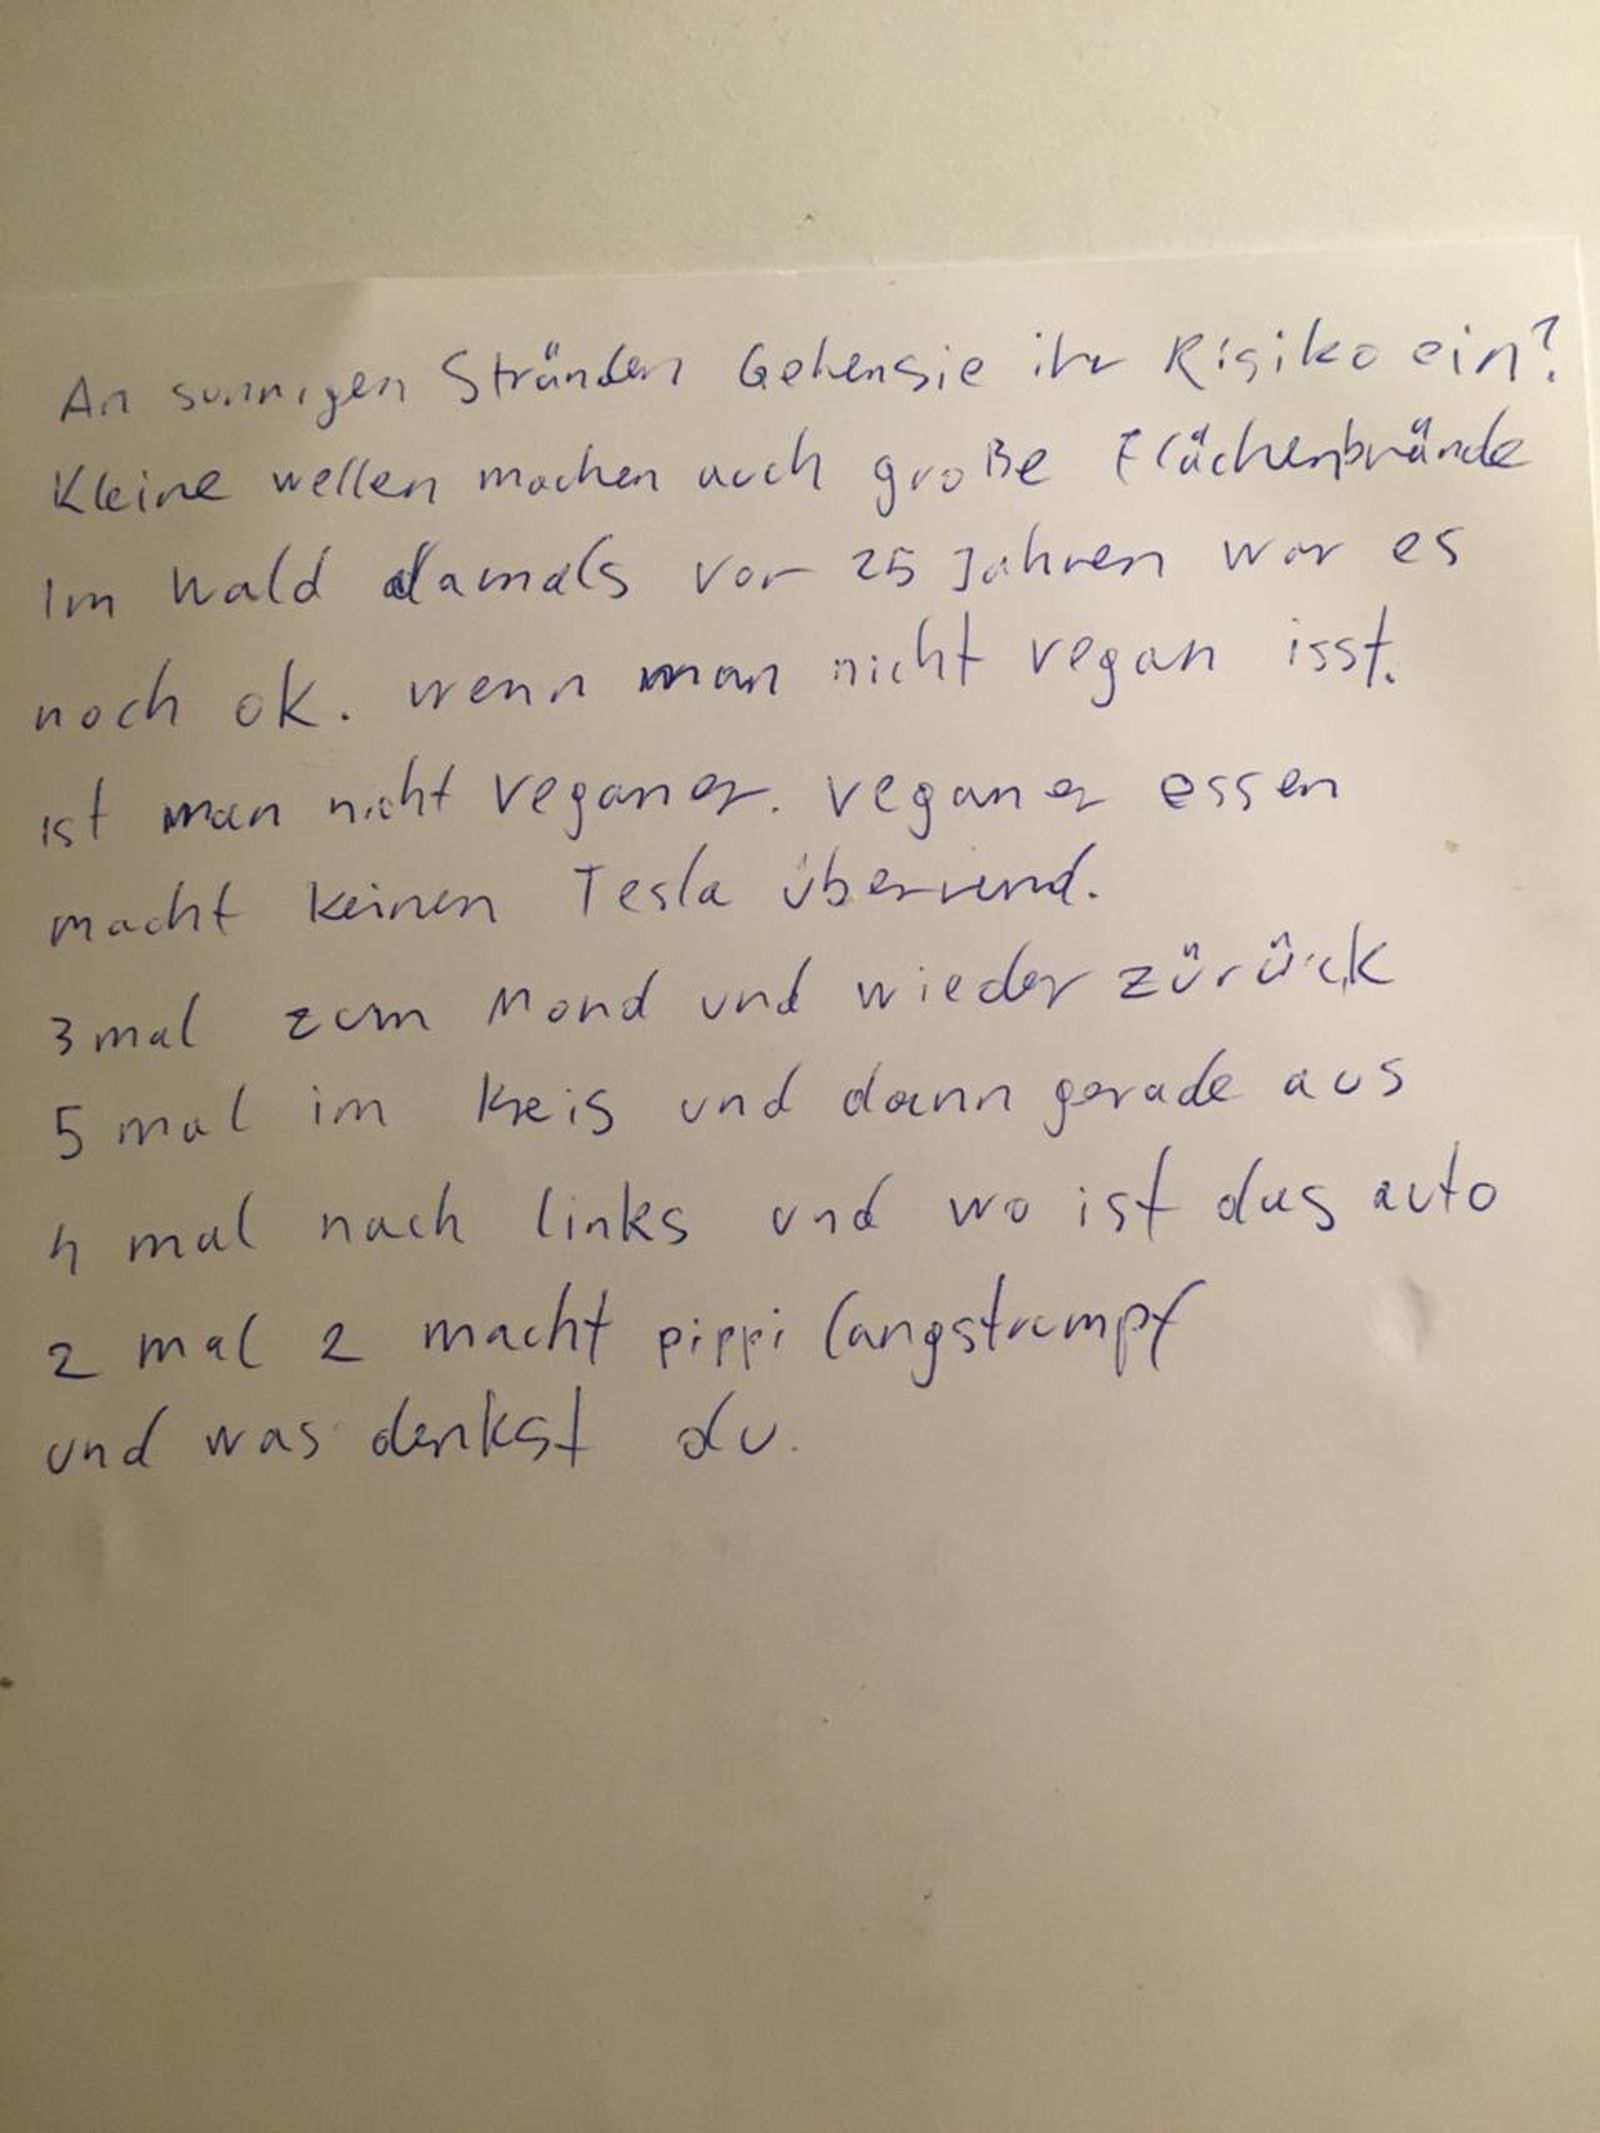 An sonnigen Stränden Gehensie ihr Risiko ein?
Kleine wellen machen auch große Flächenbrände
Im Wald damals vor 25 Jahren war es
noch ok. wenn man nicht vegan isst.
ist man nicht veganer. veganer essen
macht keinen Tesla
3 mal zum Mond und wieder zürück
5 mal im Kreis und dann gerade aus
4 mal nach links und wo ist das auto
2 mal 2 macht pippi langstrumpf
und was denkst du.